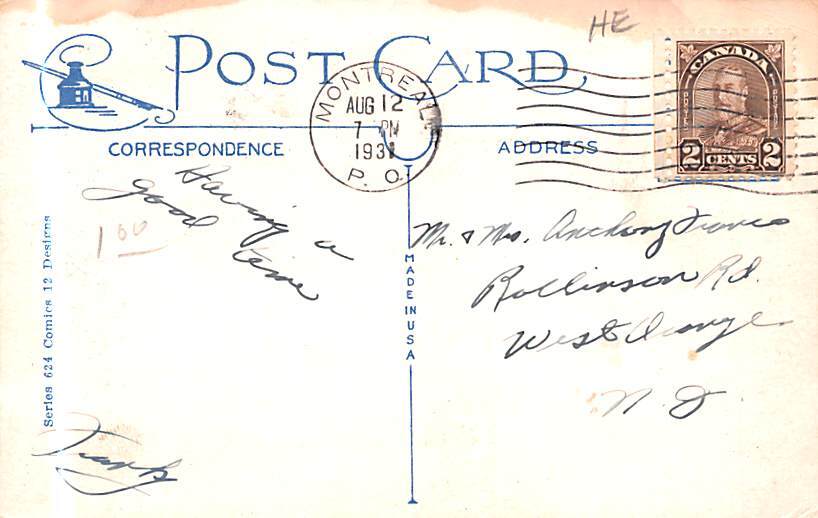 HE
POST CARD
MONTREAL
AUG 12
7 PM
1931
P. O.
CANADA
POSTES
POSTAGE
2 CENTS 2
CORRESPONDENCE
ADDRESS
Having a
good time
1 00
Frank
Series 624 Comics 12 Designs
MADE IN USA
Mr. & Mrs. Anthony
Rollinson Rd.
West Orange
N J